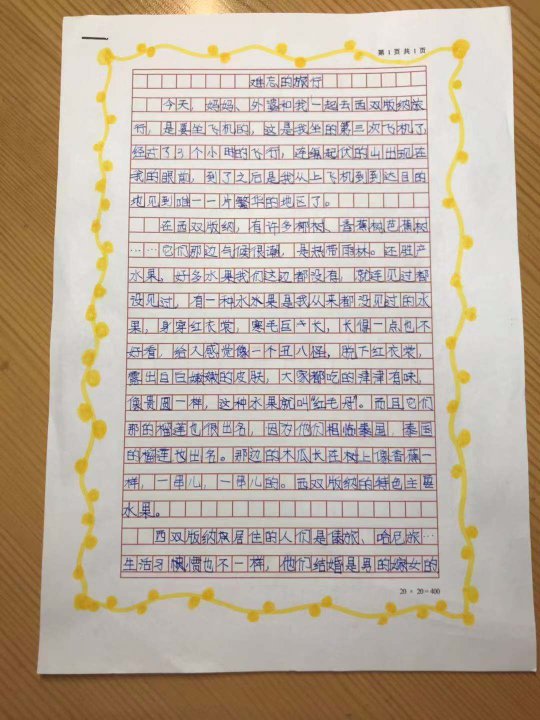 第 1 页 共 1 页
难忘的旅行
今天，妈妈、外婆和我一起去西双版纳旅
行，是要坐飞机的，这是我坐的第三次飞机了，
经过了3个小时的飞行，连绵起伏的山出现在
我的眼前，到了之后是我从上飞机到到达目的
地见到唯一一片繁华的地区了。
在西双版纳，有许多椰树、香蕉树芭蕉树
……它们那边气候很潮，是热带雨林。还胜产
水果，好多水果我们这边都没有，就连见过都
没见过，有一种水水果是我从来都没见过的水
果，身穿红衣裳，寒毛巨长，长得一点也不
好看，给人感觉像一个丑八怪，脱下红衣裳，
露出白白嫩嫩的皮肤，大家都吃的津津有味，
像贵圆一样，这种水果就叫“红毛丹”。而且它们
那的榴莲也很出名，因为他们相临泰国，泰国
的榴莲也出名。那边的木瓜长在树上像香蕉一
样，一串儿，一串儿的。西双版纳的特色主要
水果。
西双版纳居住的人们是傣族、哈尼族…
生活习惯也不一样，他们结婚是男的嫁女的
20 × 20＝400